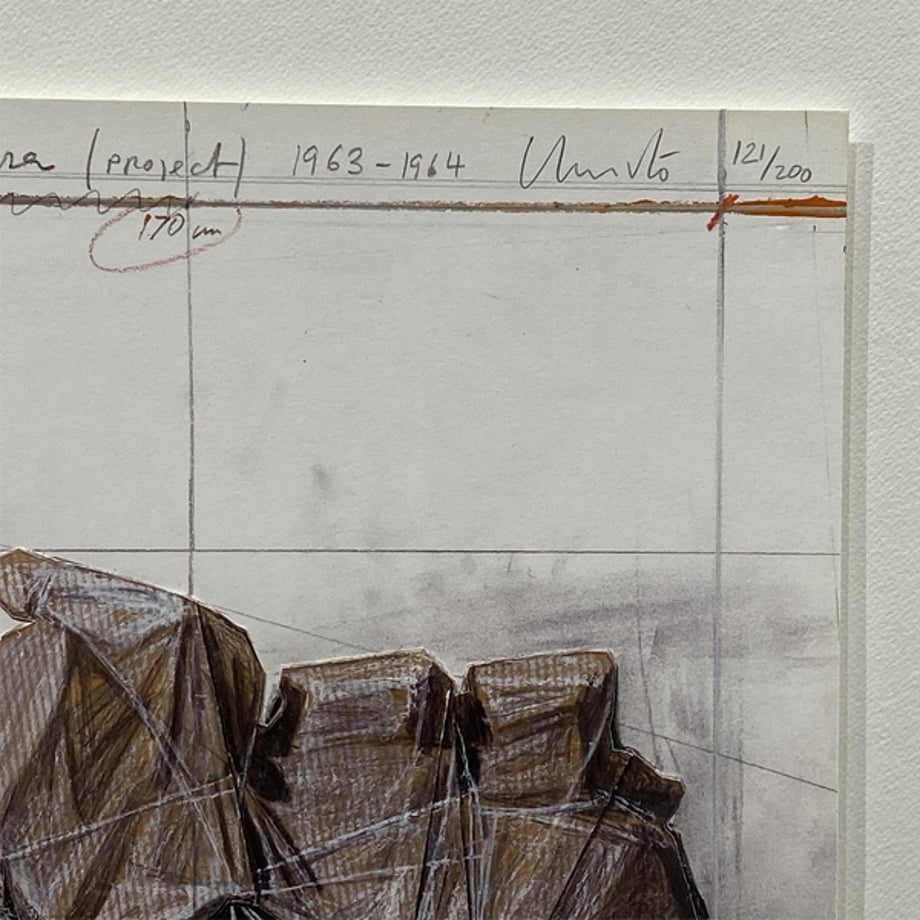 ra (project) 1963-1964 Christo 121/200
170 cm